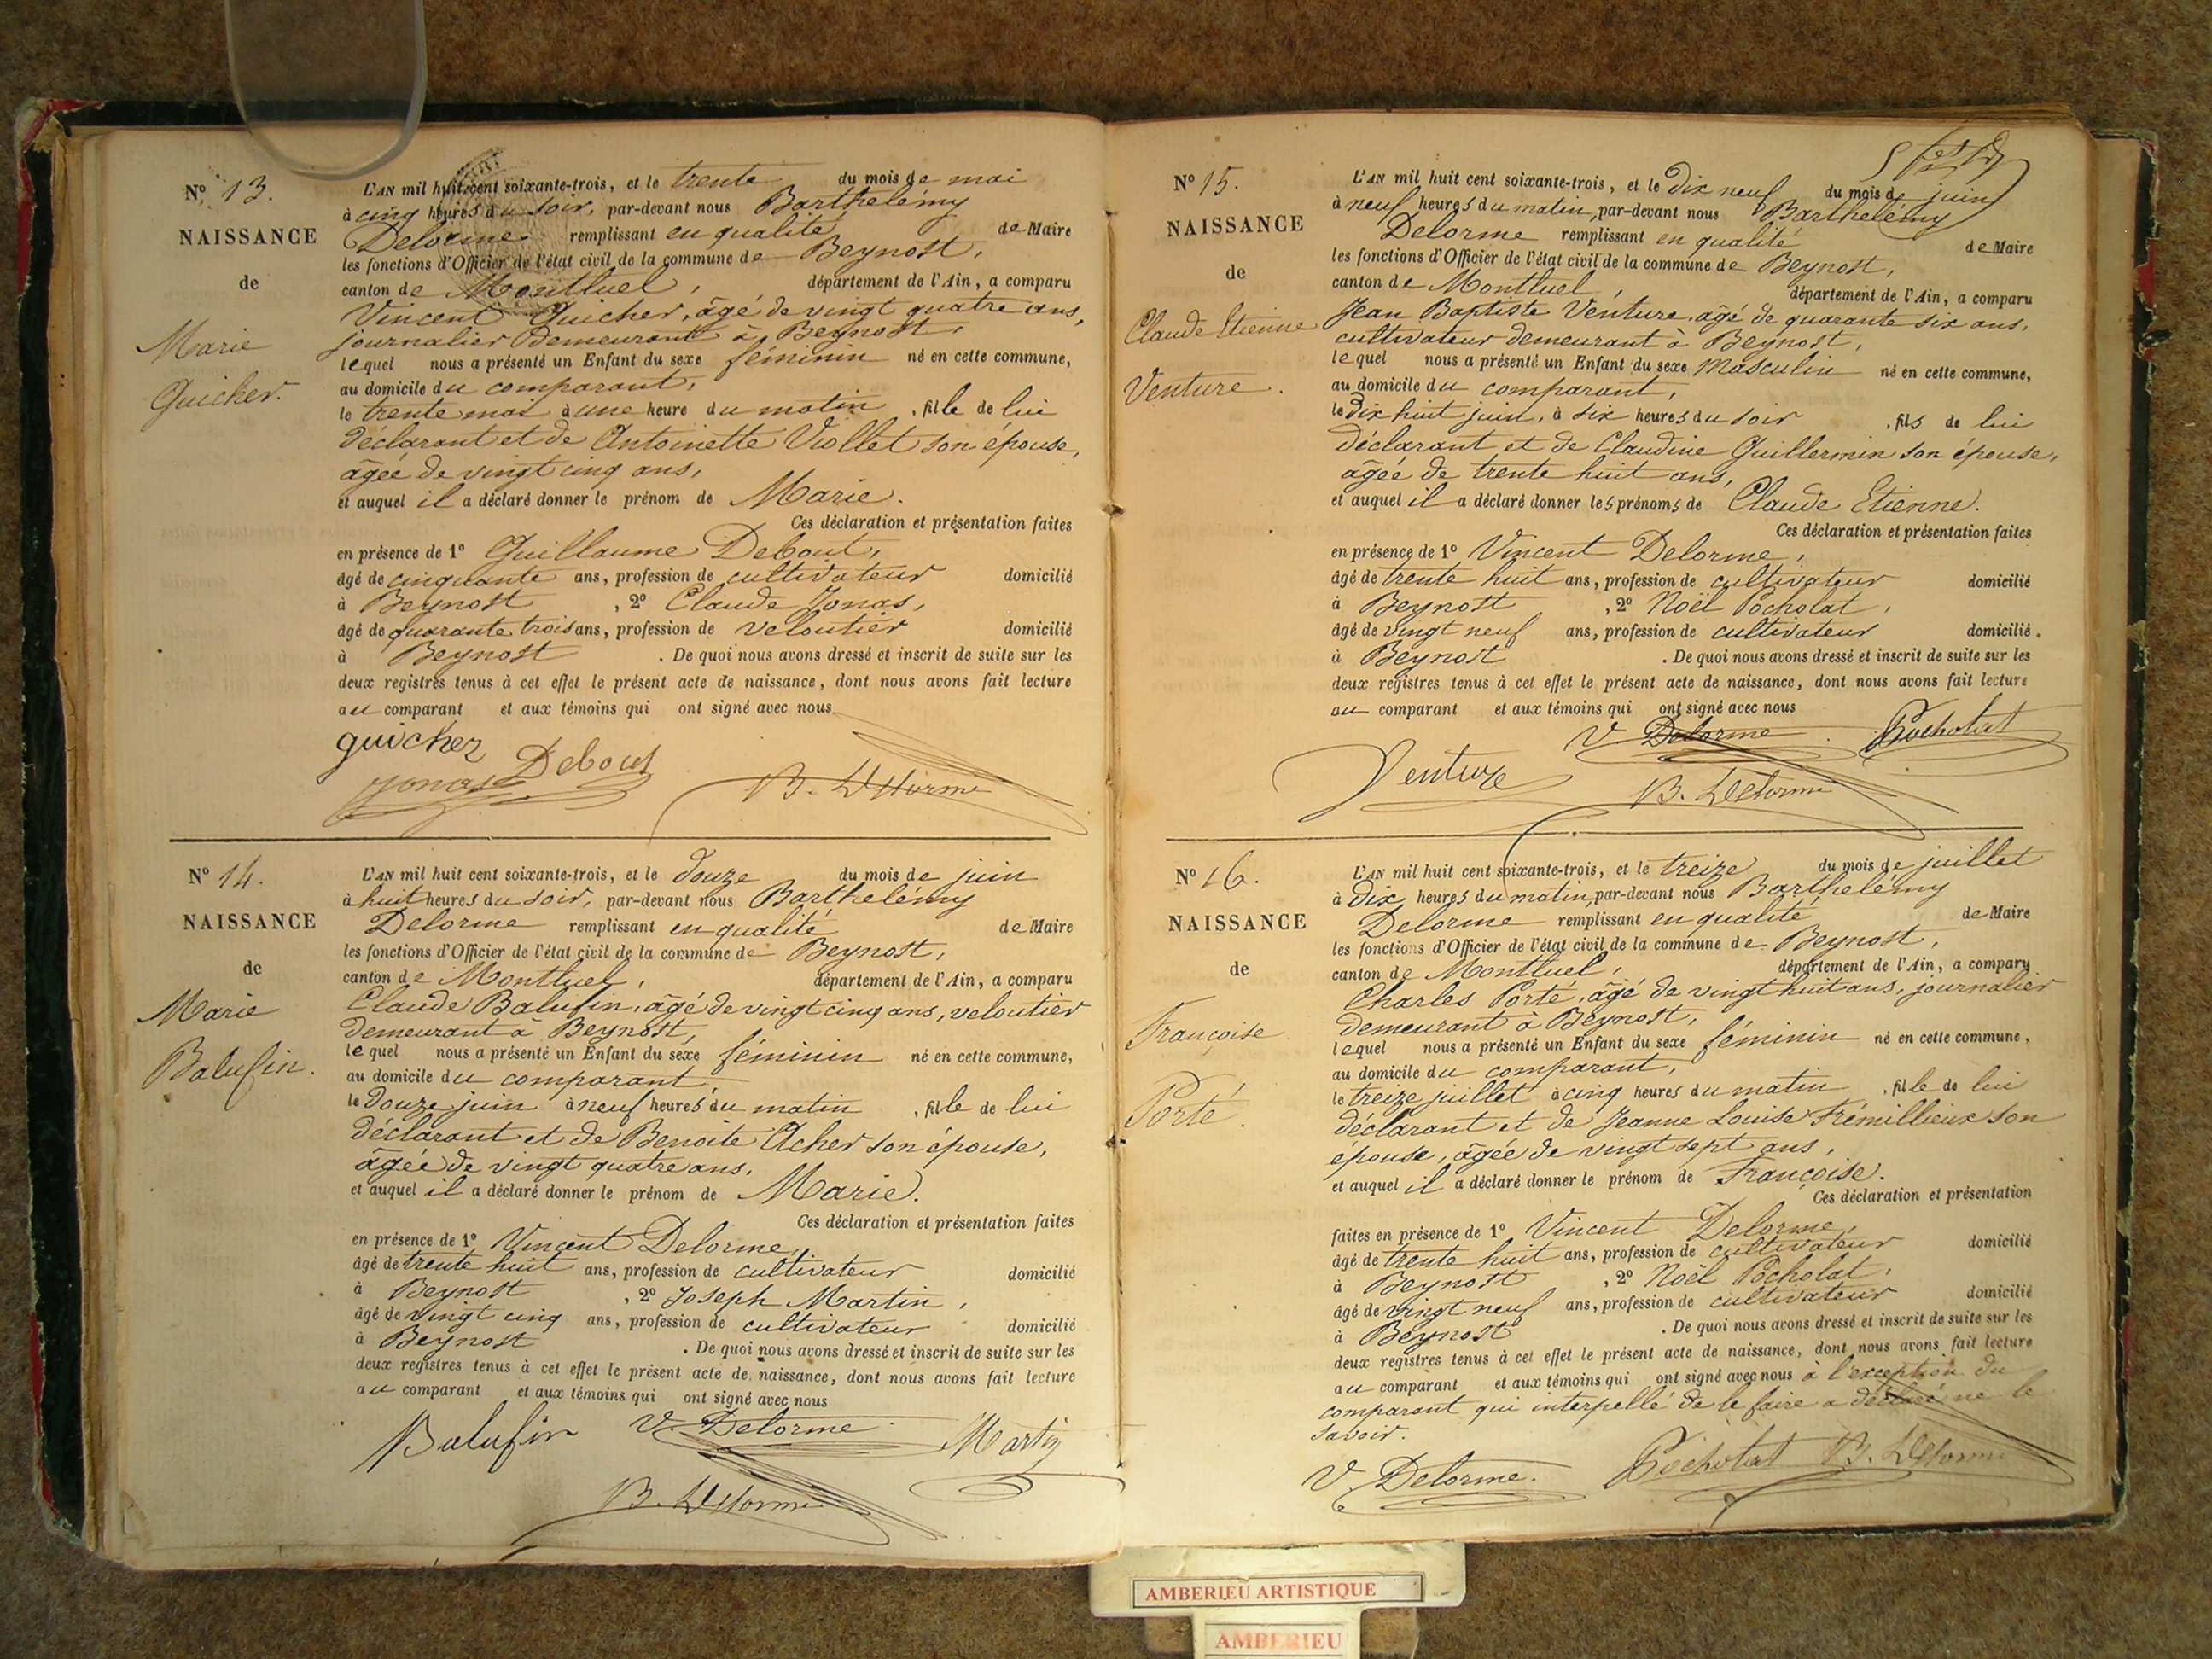 Nº 13.
NAISSANCE
de
Marie
Guicher.
L'AN mil huit cent soixante-trois, et le trente du mois de mai
à cinq heures du soir, par-devant nous Barthelémy
Delorme remplissant en qualité de Maire
les fonctions d'Officier de l'état civil de la commune de Beynost,
canton de Montluel, département de l'Ain, a comparu
Vincent Guicher, âgé de vingt quatre ans,
journalier demeurant à Beynost,
lequel nous a présenté un Enfant du sexe féminin né en cette commune,
au domicile du comparant,
le trente mai à une heure du matin, fille de lui
déclarant et de Antoinette Viollet son épouse,
âgée de vingt cinq ans,
et auquel il a déclaré donner le prénom de Marie.
Ces déclaration et présentation faites
en présence de 1º Guillaume Debout,
âgé de cinquante ans, profession de cultivateur domicilié
à Beynost, 2º Claude Jonas,
âgé de quarante trois ans, profession de veloutier domicilié
à Beynost. De quoi nous avons dressé et inscrit de suite sur les
deux registres tenus à cet effet le présent acte de naissance, dont nous avons fait lecture
au comparant et aux témoins qui ont signé avec nous
guicher
Jonas Debout B. Delorme
Nº 14.
NAISSANCE
de
Marie
Balufin.
L'AN mil huit cent soixante-trois, et le douze du mois de juin
à huit heures du soir, par-devant nous Barthelémy
Delorme remplissant en qualité de Maire
les fonctions d'Officier de l'état civil de la commune de Beynost,
canton de Montluel, département de l'Ain, a comparu
Claude Balufin, âgé de vingt cinq ans, veloutier
demeurant à Beynost,
lequel nous a présenté un Enfant du sexe féminin né en cette commune,
au domicile du comparant,
le douze juin à neuf heures du matin, fille de lui
déclarant et de Benoite Acher son épouse,
âgée de vingt quatre ans,
et auquel il a déclaré donner le prénom de Marie.
Ces déclaration et présentation faites
en présence de 1º Vincent Delorme,
âgé de trente huit ans, profession de cultivateur domicilié
à Beynost, 2º Joseph Martin,
âgé de vingt cinq ans, profession de cultivateur domicilié
à Beynost. De quoi nous avons dressé et inscrit de suite sur les
deux registres tenus à cet effet le présent acte de naissance, dont nous avons fait lecture
au comparant et aux témoins qui ont signé avec nous
Balufin V. Delorme Martin
B. Delorme
Nº 15.
NAISSANCE
de
Claude Etienne
Venture.
L'AN mil huit cent soixante-trois, et le dix neuf du mois de juin
à neuf heures du matin, par-devant nous Barthelémy
Delorme remplissant en qualité de Maire
les fonctions d'Officier de l'état civil de la commune de Beynost,
canton de Montluel, département de l'Ain, a comparu
Jean Baptiste Venture, âgé de quarante six ans,
cultivateur demeurant à Beynost,
lequel nous a présenté un Enfant du sexe Masculin né en cette commune,
au domicile du comparant,
le dix huit juin, à six heures du soir, fils de lui
déclarant et de Claudine Guillermin son épouse,
âgée de trente huit ans,
et auquel il a déclaré donner les prénoms de Claude Etienne.
Ces déclaration et présentation faites
en présence de 1º Vincent Delorme,
âgé de trente huit ans, profession de cultivateur domicilié
à Beynost, 2º Noël Pocholat,
âgé de vingt neuf ans, profession de cultivateur domicilié.
à Beynost. De quoi nous avons dressé et inscrit de suite sur les
deux registres tenus à cet effet le présent acte de naissance, dont nous avons fait lecture
au comparant et aux témoins qui ont signé avec nous
V Delorme Pocholat
Venture B. Delorme
Nº 16.
NAISSANCE
de
Françoise
Porté.
L'AN mil huit cent soixante-trois, et le treize du mois de juillet
à dix heures du matin, par-devant nous Barthelémy
Delorme remplissant en qualité de Maire
les fonctions d'Officier de l'état civil de la commune de Beynost,
canton de Montluel, département de l'Ain, a comparu
Charles Porté, âgé de vingt huit ans, journalier
demeurant à Beynost,
lequel nous a présenté un Enfant du sexe féminin né en cette commune,
au domicile du comparant,
le treize juillet à cinq heures du matin, fille de lui
déclarant et de Jeanne Louise Frémillieux son
épouse, âgée de vingt sept ans,
et auquel il a déclaré donner le prénom de Françoise.
Ces déclaration et présentation
faites en présence de 1º Vincent Delorme,
âgé de trente huit ans, profession de cultivateur domicilié
à Beynost, 2º Noël Pocholat,
âgé de vingt neuf ans, profession de cultivateur domicilié
à Beynost. De quoi nous avons dressé et inscrit de suite sur les
deux registres tenus à cet effet le présent acte de naissance, dont nous avons fait lecture
au comparant et aux témoins qui ont signé avec nous à l'exception du
comparant qui interpellé de le faire a déclaré ne le
savoir.
V. Delorme. Pocholat B. Delorme
AMBERIEU ARTISTIQUE
AMBERIEU